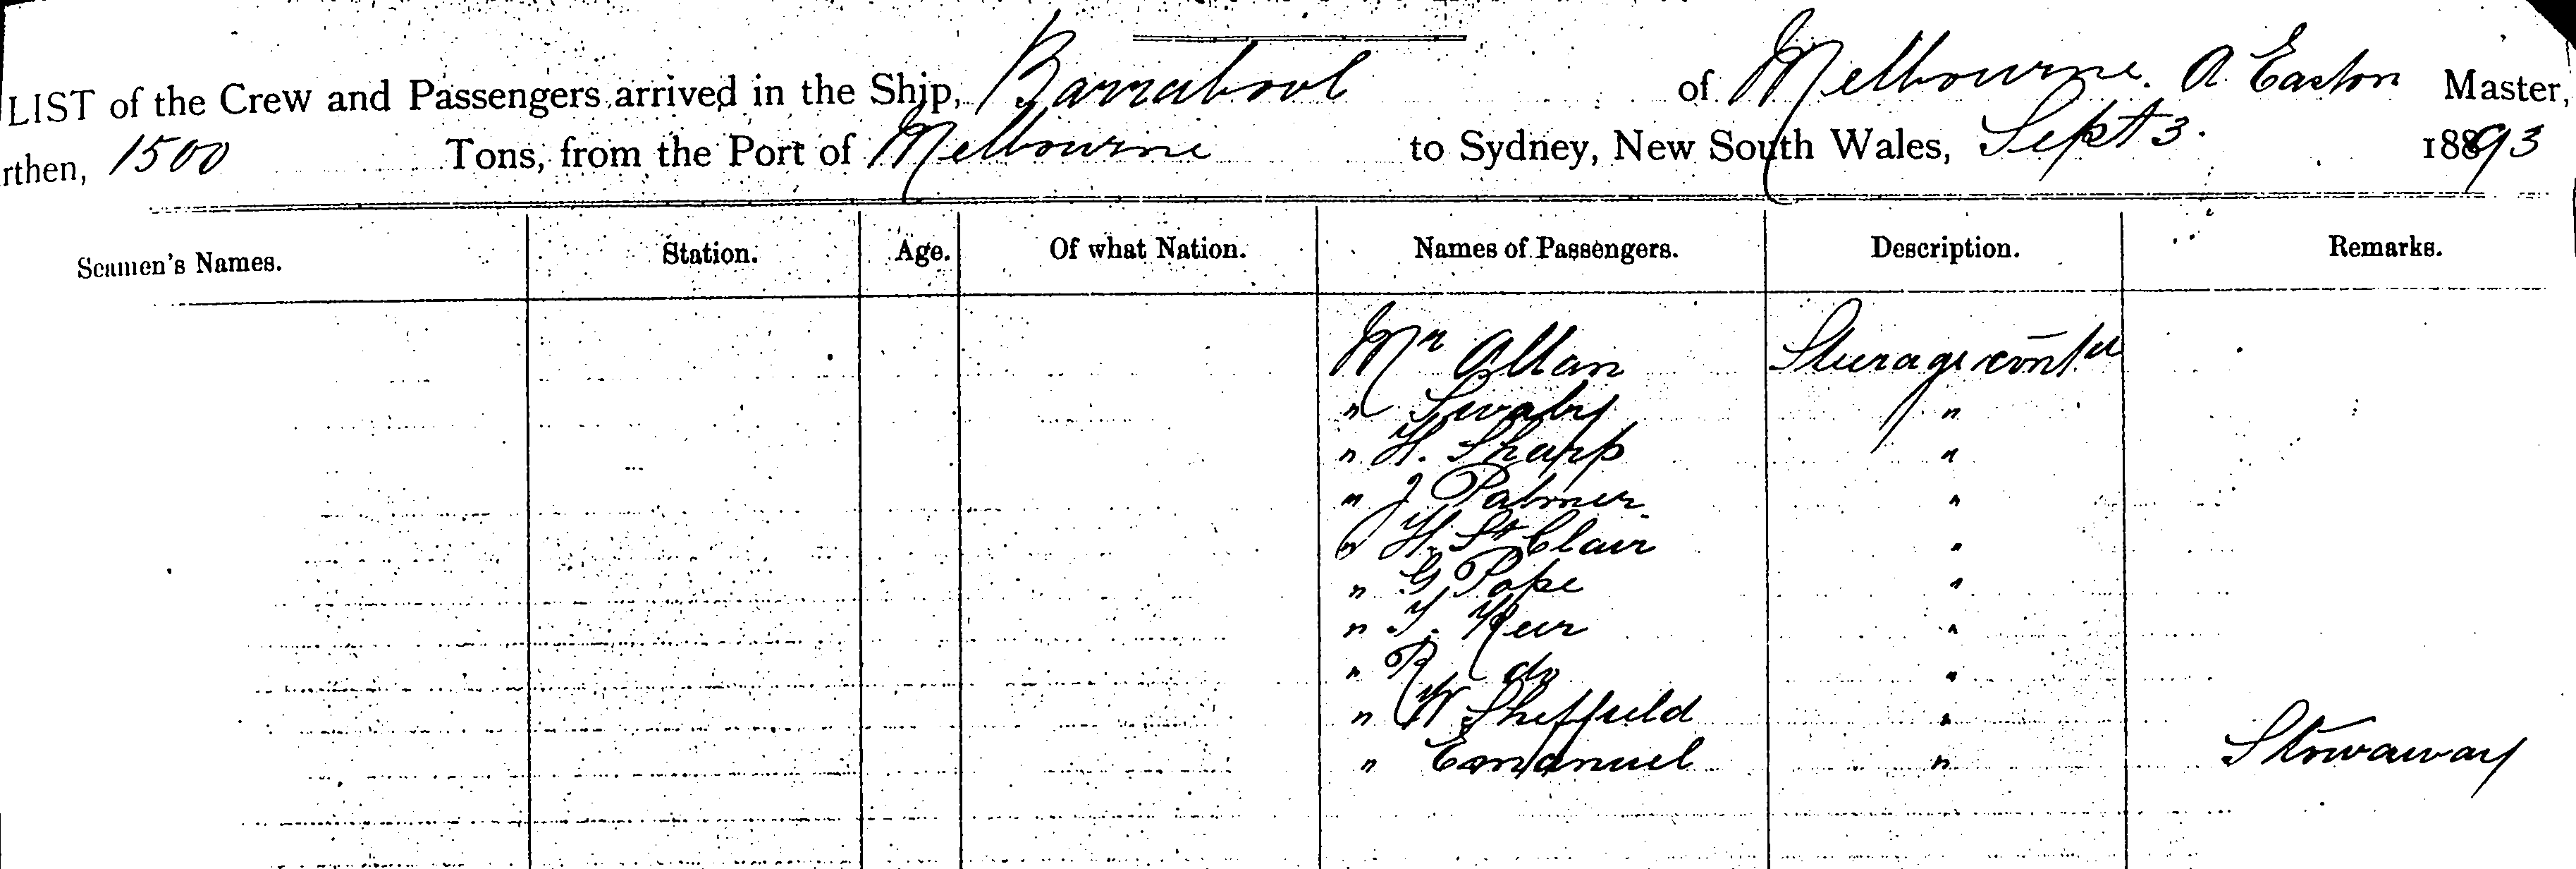 LIST of the Crew and Passengers arrived in the Ship, Barrabool of Melbourne. A Easton Master,
rthen, 1500 Tons, from the Port of Melbourne to Sydney, New South Wales, Sept 3. 1893
Seamen's Names. Station. Age. Of what Nation. Names of Passengers. Description. Remarks.
Mr Allan Steerage cont'd
" Swaby "
" H. Sharp "
" J Palmer "
" H. St Clair "
" G Pope "
" T. Keir "
" R do "
" W Sheffield "
" Emanuel " Stowaway